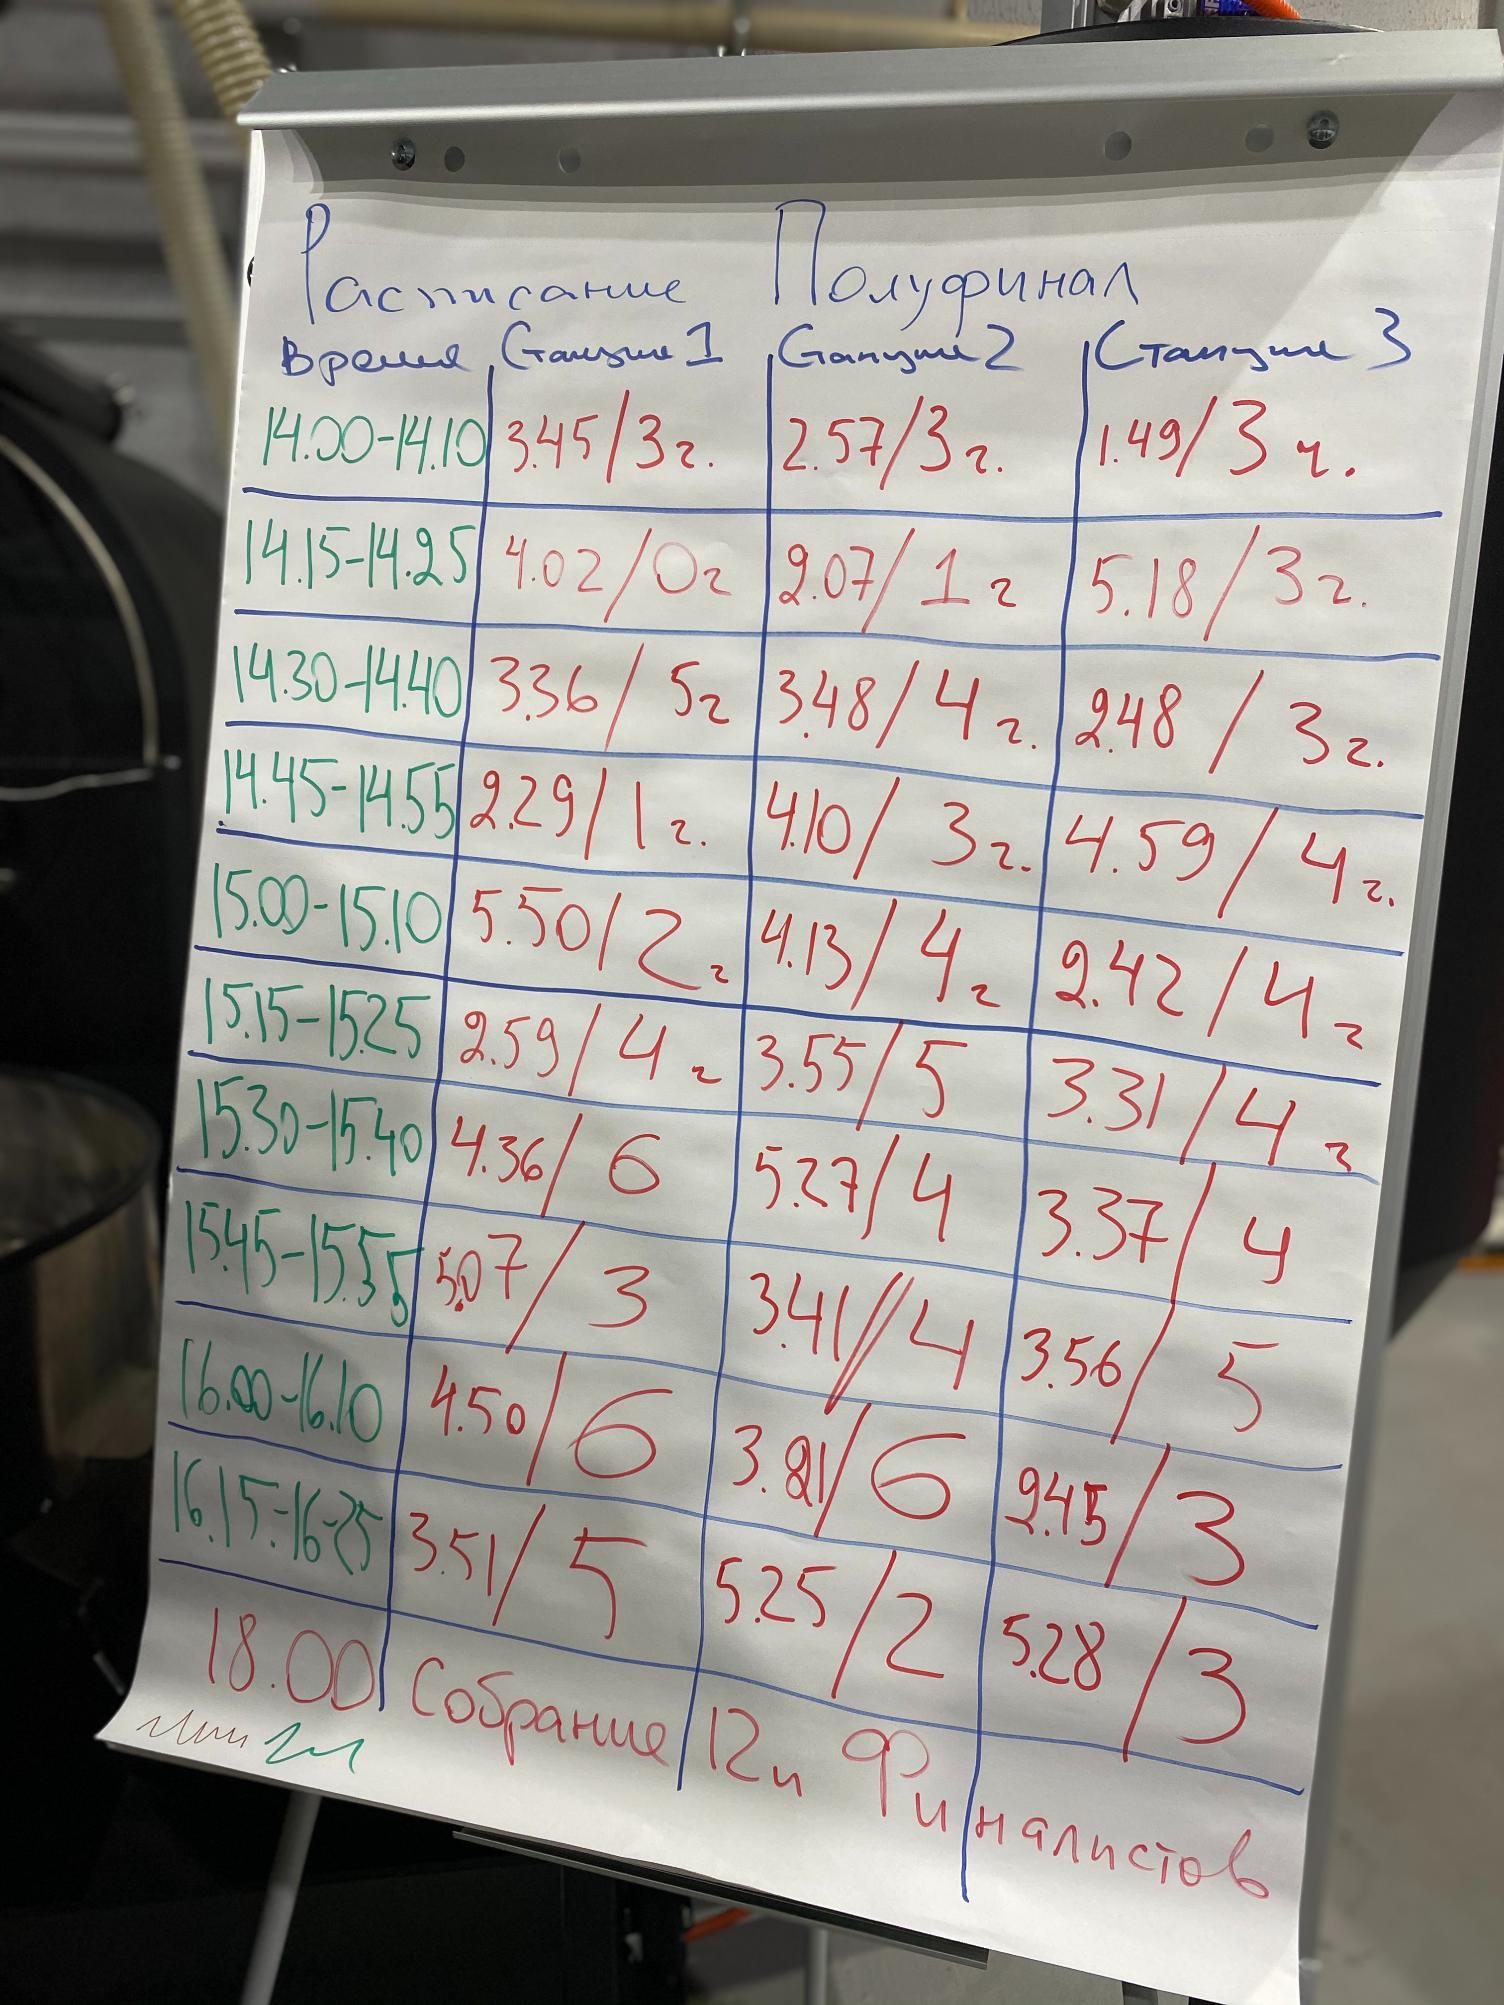 Расписание Полуфинал
Время Станция 1 Станция 2 Станция 3
14.00-14.10 3.45/3г. 2.57/3г. 1.49/3г.
14.15-14.25 4.02/0г 2.07/1г 5.18/3г.
14.30-14.40 3.36/5г 3.48/4г. 2.48/3г.
14.45-14.55 2.29/1г. 4.10/3г. 4.59/4г.
15.00-15.10 5.50/2г 4.13/4г 2.42/4г
15.15-15.25 2.59/4г 3.55/5 3.31/4г
15.30-15.40 4.36/6 5.27/4 3.37/4
15.45-15.55 5.07/3 3.41//4 3.56/5
16.00-16.10 4.50/6 3.21/6 2.45/3
16.15-16-25 3.51/5 5.25/2 5.28/3
18.00 Собрание 12и Финалистов